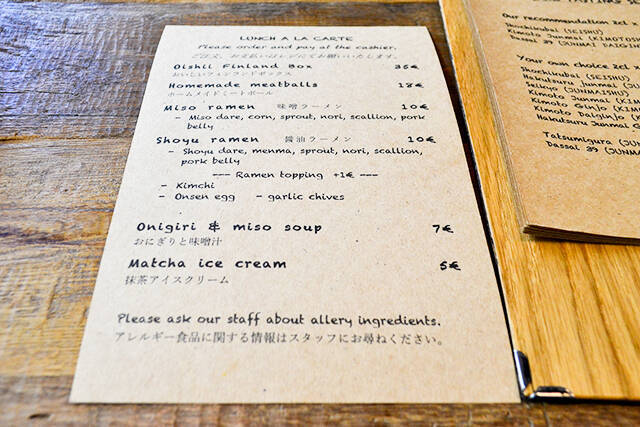 LUNCH A LA CARTE
Please order and pay at the cashier.
ご注文、お支払いはレジにてお願いいたします。
Oishii Finland Box 35€
おいしいフィンランドボックス
Homemade meatballs 18€
ホームメイドミートボール
Miso ramen 味噌ラーメン 10€
- Miso dare, corn, sprout, nori, scallion, pork
belly
Shoyu ramen 醤油ラーメン 10€
- Shoyu dare, menma, sprout, nori, scallion,
pork belly
--- Ramen topping +1€ ---
- Kimchi
- Onsen egg - garlic chives
Onigiri & miso soup 7€
おにぎりと味噌汁
Matcha ice cream 5€
抹茶アイスクリーム
Please ask our staff about allery ingredients.
アレルギー食品に関する情報はスタッフにお尋ねください。
TASTING
Our recommendation 2cl
Hochikubai (SEISHU)
Kimoto Junmai (KIMOTO
Dassai 39 (JUNMAI DAIGIN
Your own choice 2cl
Hochikubai (SEISHU)
Tatsumigura (JUNM
Dassai 39 (JUNM